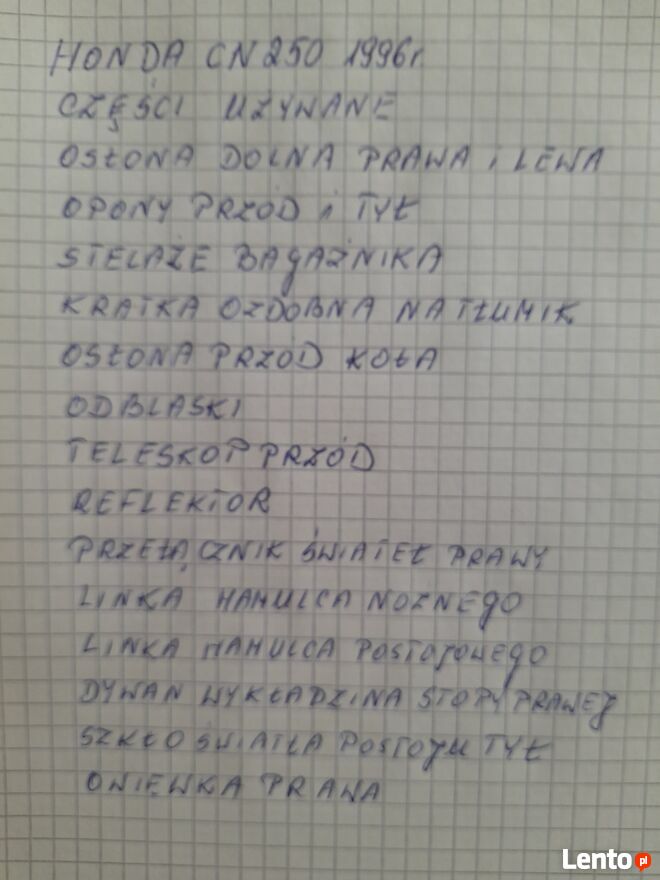 HONDA CN 250 1996r.
CZĘŚCI UŻYWANE
OSŁONA DOLNA PRAWA i LEWA
OPONY PRZÓD i TYŁ
STELAŻE BAGAŻNIKA
KRATKA OZDOBNA NA TŁUMIK
OSŁONA PRZÓD KOŁA
ODBLASKI
TELESKOP PRZÓD
REFLEKTOR
PRZEŁĄCZNIK ŚWIATEŁ PRAWY
LINKA HAMULCA NOŻNEGO
LINKA HAMULCA POSTOJOWEGO
DYWAN WYKŁADZINA STOPY PRAWEJ
SZKŁO ŚWIATŁA POSTOJU TYŁ
OWIEWKA PRAWA
Lento.pl